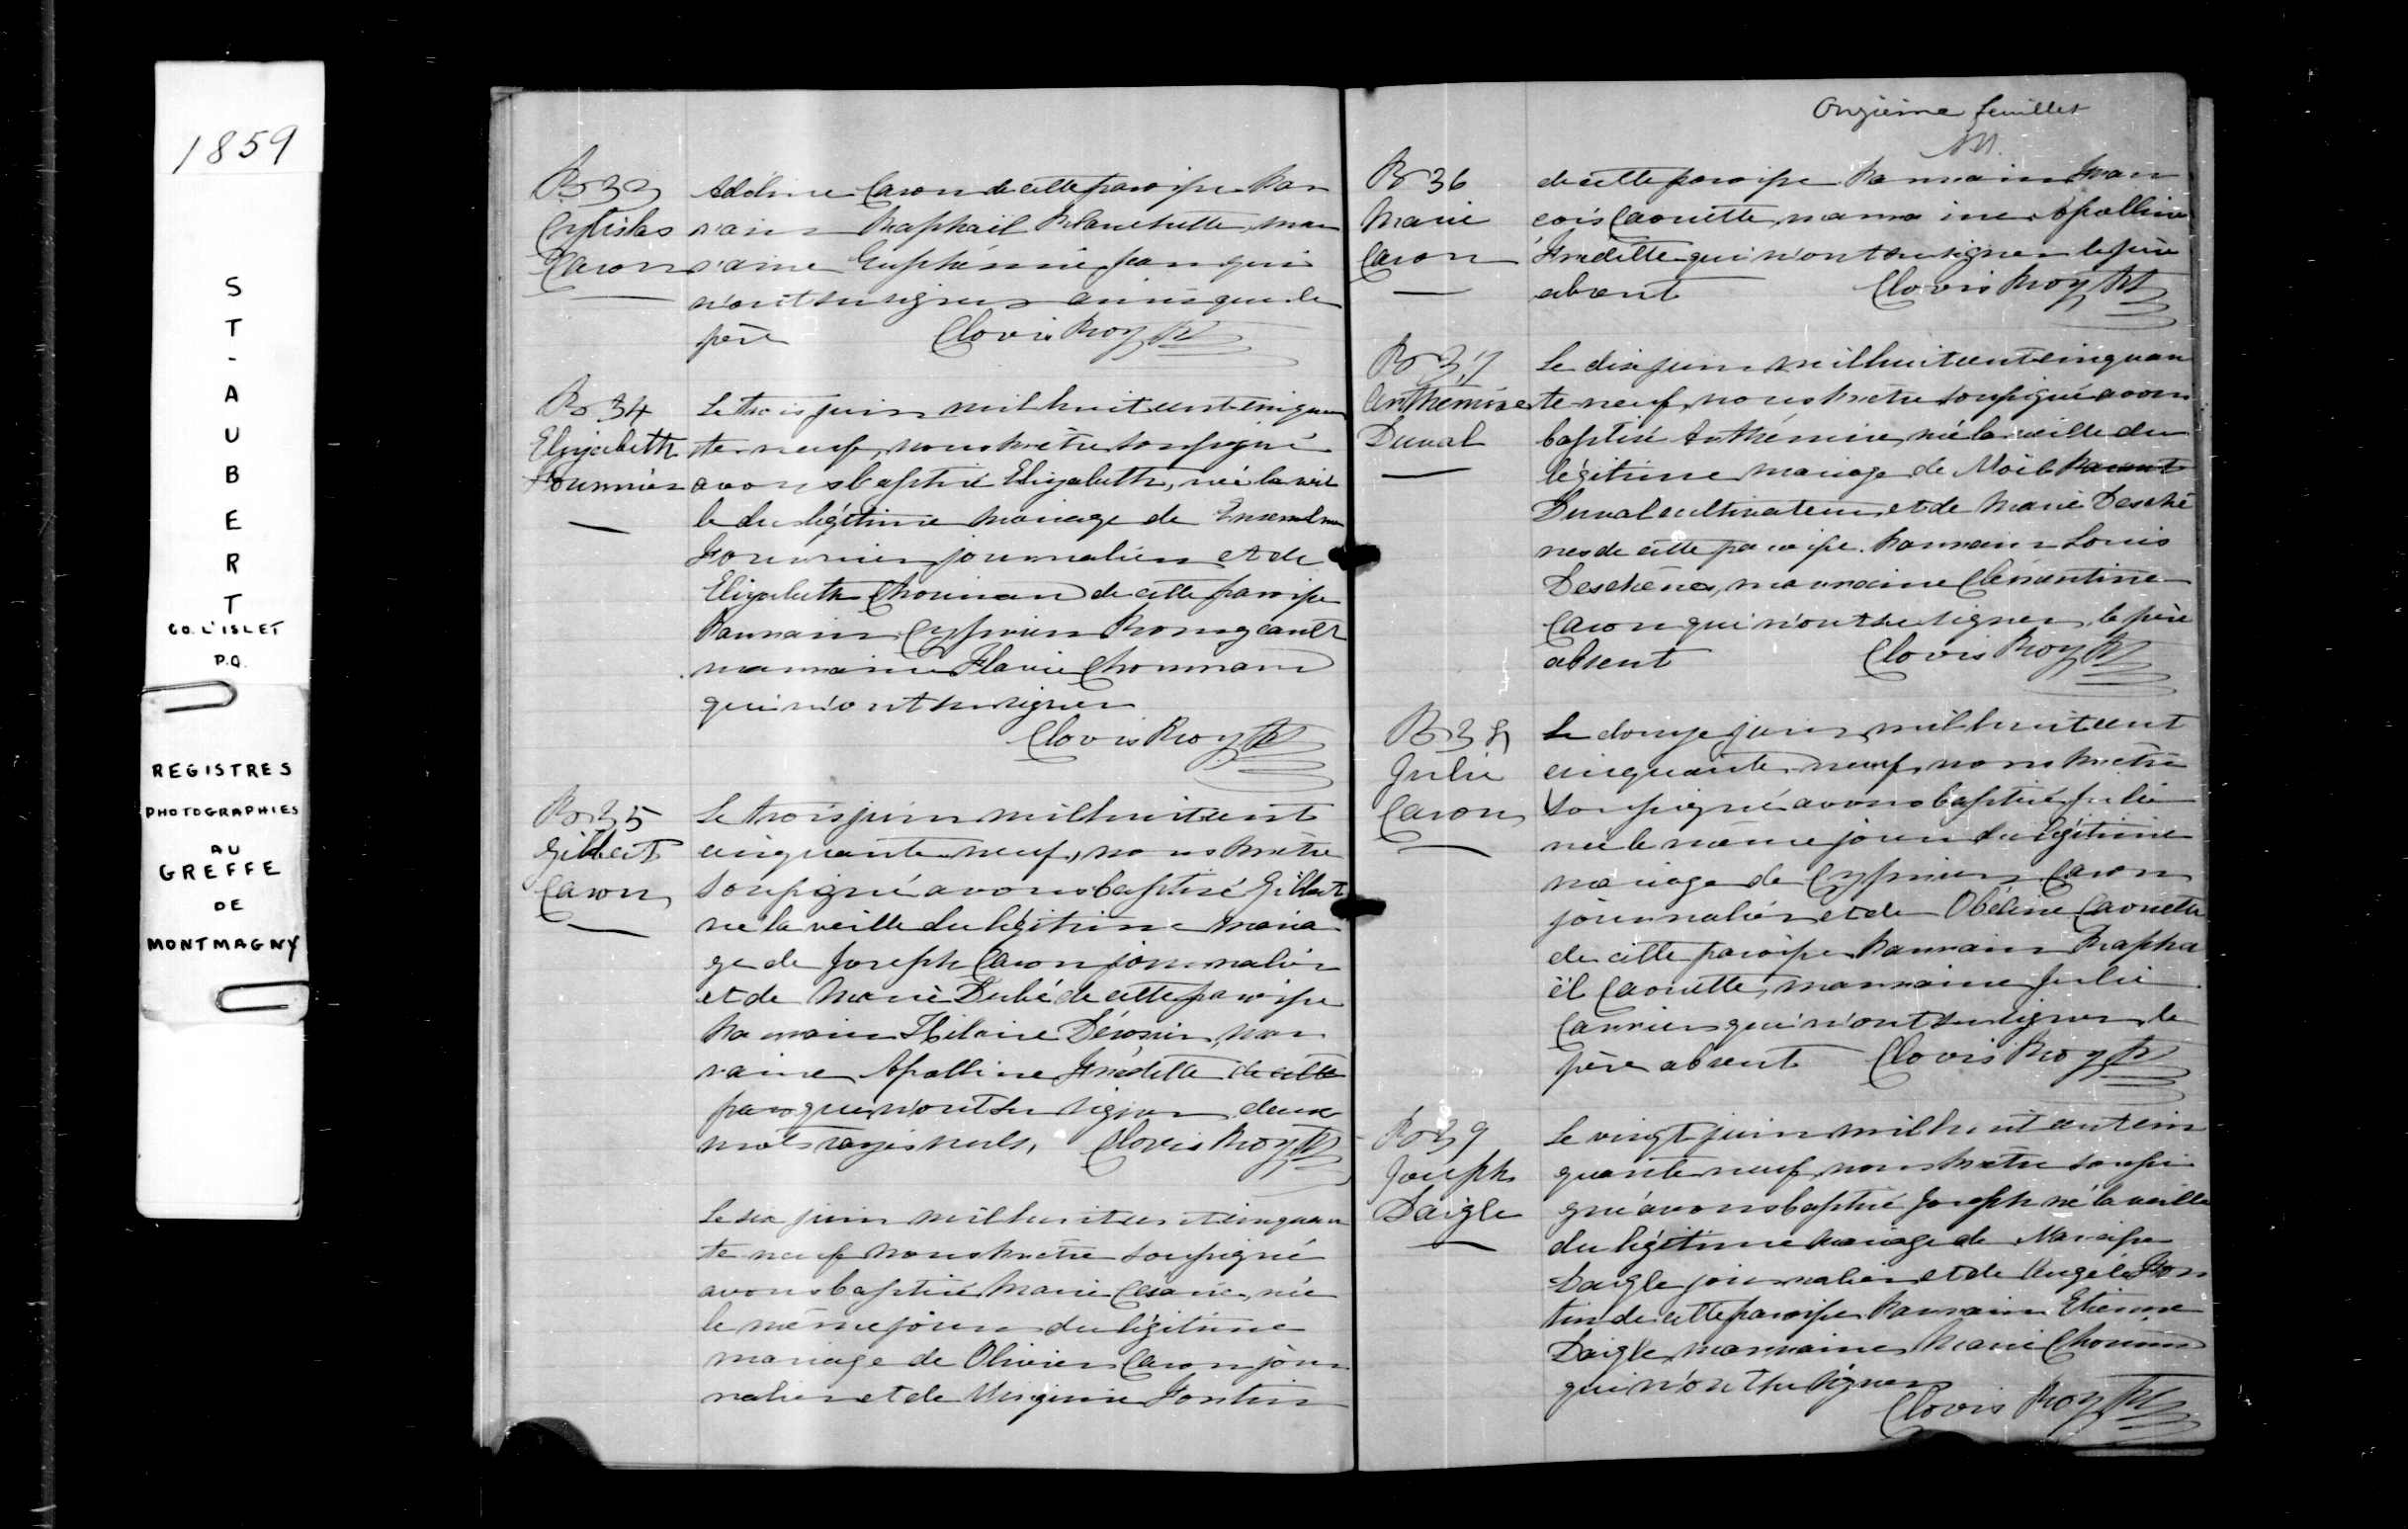 1859
ST-AUBERT
CO. L'ISLET
P.Q.
REGISTRES
PHOTOGRAPHIES
AU
GREFFE
DE
MONTMAGNY
B 33
Caron
Adéline Caron de cette paroisse Par
rain Raphaël Blanchette, mar
raine Euphémie Jean qui
n'ont su signer ainsi que le
père Clovis Roy Ptre
B 34
Elizabeth
Fournier
Le trois juin mil huit cent cinquan
te neuf, nous Prêtre soussigné
avons baptisé Elizabeth, née la veil
le du légitime mariage de
Fournier journalier et de
Elizabeth Chouinard de cette paroisse
Parrain Cyprien
marraine Flavie Chouinard
qui n'ont su signer
Clovis Roy Ptre
B 35
Gilbert
Caron
Le trois juin mil huit cent
cinquante neuf, nous Prêtre
soussigné avons baptisé Gilbert
né la veille du légitime maria
ge de Joseph Caron journalier
et de Marie Dubé de cette paroisse
Parrain Hilaire mar
raine Apolline Fredette de cette
par qui n'ont su signer deux
mots rayés nuls, Clovis Roy Ptre
Le six juin mil huit cent cinquan
te neuf nous Prêtre soussigné
avons baptisé Marie née
le même jour du légitime
mariage de Olivier Caron jour
nalier et de Virginie Fortin
Onzième feuillet
B 36
Marie
Caron
de cette paroisse Parrain Fran
çois Caouette, marraine Apolline
Fredette qui n'ont su signer le père
absent Clovis Roy Ptre
B 37
Anthémise
Duval
Le dix juin mil huit cent cinquan
te neuf, nous Prêtre soussigné avons
baptisé Anthémise, née la veille du
légitime mariage de Noël
Duval cultivateur et de Marie Deschê
nes de cette paroisse. Parrain Louis
Deschênes, marraine Clémentine
Caron qui n'ont su signer, le père
absent Clovis Roy Ptre
B 38
Julie
Caron
Le douze juin mil huit cent
cinquante neuf, nous Prêtre
soussigné avons baptisé Julie
née le même jour du légitime
mariage de Cyprien Caron
journalier et de Obéline Caouette
de cette paroisse Parrain Rapha
ël Caouette, marraine Julie
qui n'ont su signer, le
père absent Clovis Roy Ptre
B 39
Joseph
Daigle
Le vingt juin mil huit cent cin
quante neuf, nous Prêtre soussi
gné avons baptisé Joseph né la veille
du légitime mariage de Narcisse
Daigle journalier et de Angèle For
tin de cette paroisse Parrain Etienne
Daigle, marraine Marie Chouinard
qui n'ont su signer
Clovis Roy Ptre